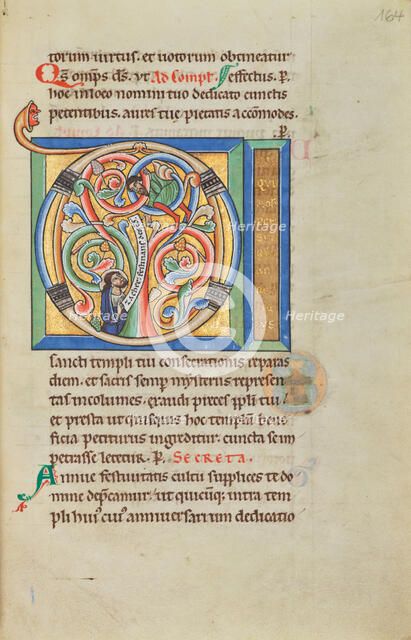 164
torum uirtus. et uotorum obtineatur
Qs omps ds. ut Ad Compl. effectus. P.
hoc in loco nomini tuo dedicato cunctis
petentibus. aures tue pietatis accomodes.
P.
Zachee festinans
sancti templi tui consecrationis reparas
diem. et sacris semp mysteriis represen
tas incolumes. exaudi preces ppli tui.
et presta ut quisquis hoc templum bene
ficia petiturus ingreditur. cuncta se im
petrasse letetur. P. SECRETA.
Annue festiuitatis cultu supplices te do
mine deprecamur. ut quicuq; intra tem
pli hui cui anniuersarium dedicatio
Heritage
Heritage
Heritage
Heritage